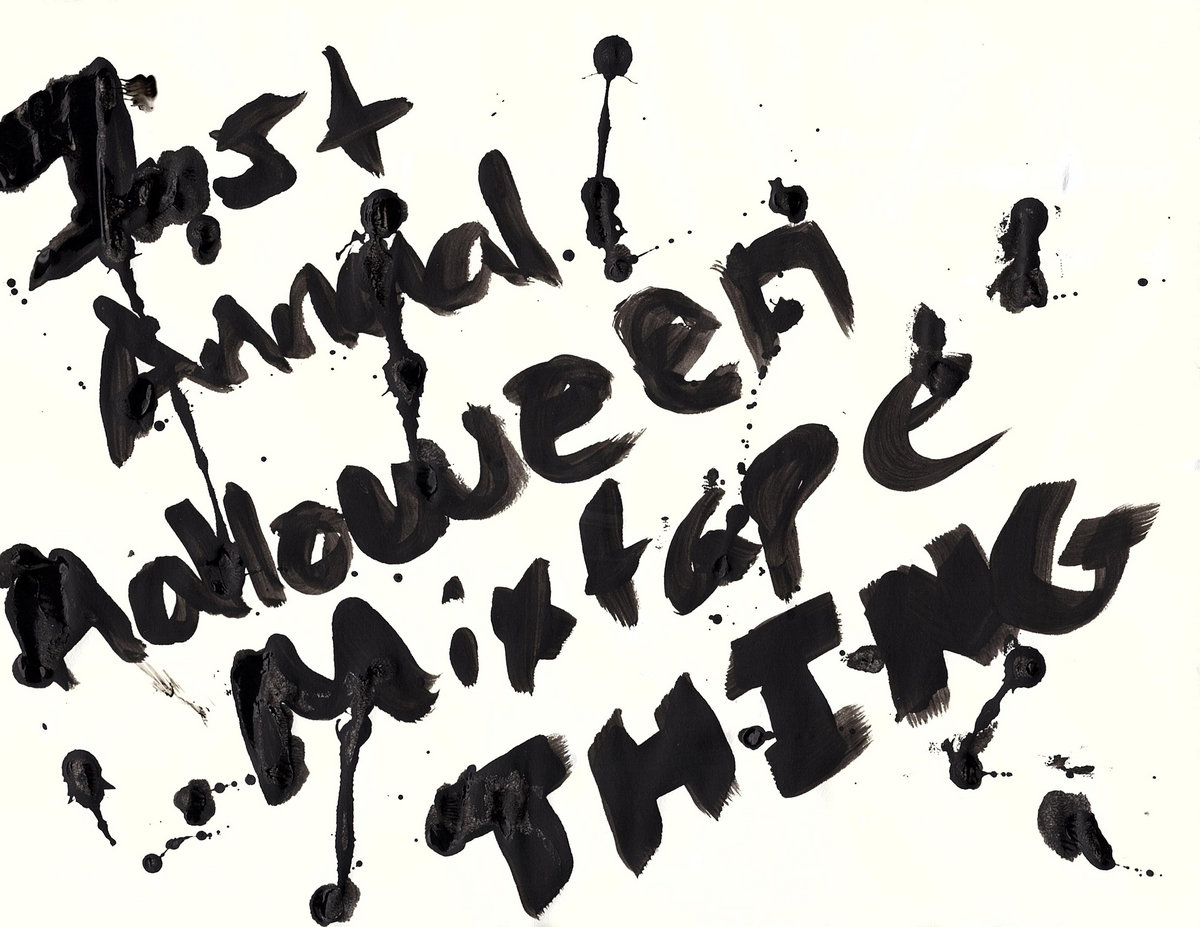 1st
Annual
Halloween
Mixtape
THING